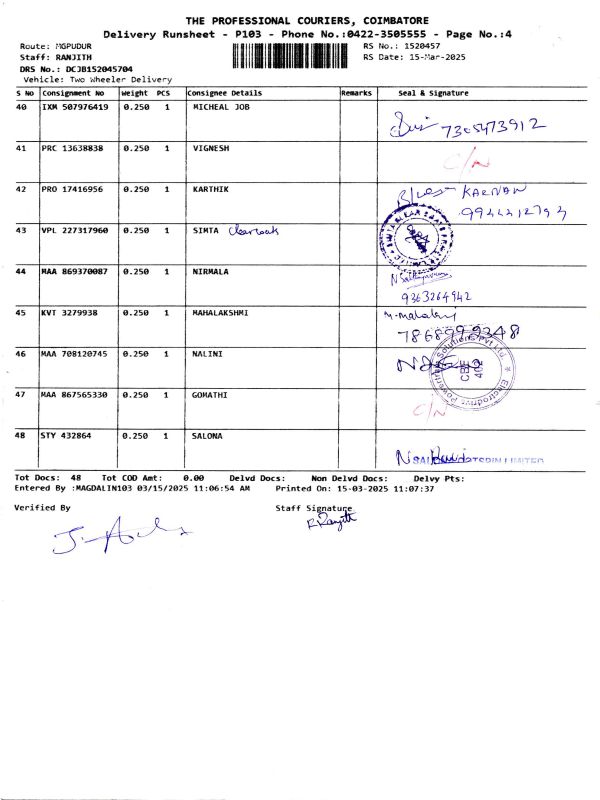 THE PROFESSIONAL COURIERS, COIMBATORE
Delivery Runsheet - P103 - Phone No.:0422-3505555 - Page No.:4
Route: MGPUDUR RS No.: 1520457
Staff: RANJITH RS Date: 15-Mar-2025
DRS No.: DCJB152045704
Vehicle: Two Wheeler Delivery
S No Consignment No Weight PCS Consignee Details Remarks Seal & Signature
40 IXM 507976419 0.250 1 MICHEAL JOB
7305473912
41 PRC 13638838 0.250 1 VIGNESH C/N
42 PRO 17416956 0.250 1 KARTHIK KARNAN
43 VPL 227317960 0.250 1 SIMTA Clearcoats
44 MAA 869370087 0.250 1 NIRMALA
9363264942
45 KVT 3279938 0.250 1 MAHALAKSHMI
7868999348
46 MAA 708120745 0.250 1 NALINI
Electrodrive Powertrain Solutions Pvt Ltd
CBE
402
47 MAA 867565330 0.250 1 GOMATHI C/N
48 STY 432864 0.250 1 SALONA
LIMITED
Tot Docs: 48 Tot COD Amt: 0.00 Delvd Docs: Non Delvd Docs: Delvy Pts:
Entered By :MAGDALIN103 03/15/2025 11:06:54 AM Printed On: 15-03-2025 11:07:37
Verified By Staff Signature
R Ranjith